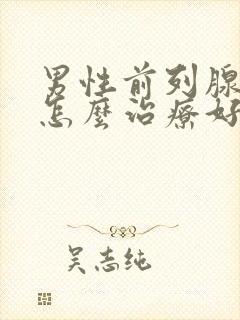 男性前列腺
怎麼治療好
吴志纯